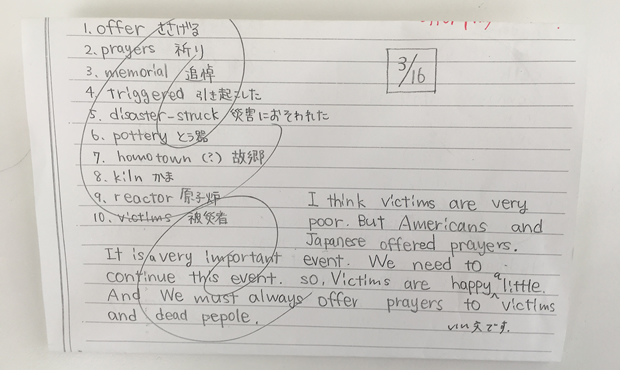 1. offer ささげる
2. prayers 祈り
3. memorial 追悼
4. triggered 引き起こした
5. disaster-struck 災害におそわれた
6. pottery とう器
7. homotown (?) 故郷
8. kiln かま
9. reactor 原子炉
10. victims 被災者
3/16
I think victims are very
poor. But Americans and
Japanese offered prayers.
It is a very important event. We need to
continue this event. so, Victims are happy a little.
And We must always offer prayers to victims
and dead pepole.
いい文です。